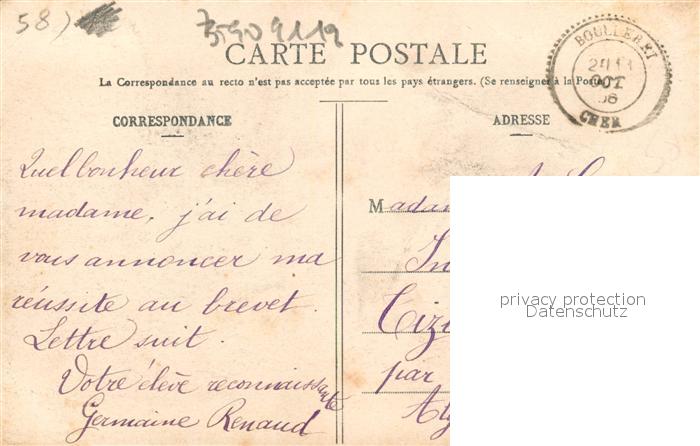 58)
35909112
CARTE POSTALE
La Correspondance au recto n'est pas acceptée par tous les pays étrangers. (Se renseigner à la Poste)
BOULLERET
OCT
CHER
CORRESPONDANCE
ADRESSE
Quel bonheur chère
madame, j'ai de
vous annoncer ma
réussite au brevet.
Lettre suit.
Votre élève reconnaissante
Germaine Renaud
Madam
In
Tizi
par
Alg
privacy protection
Datenschutz